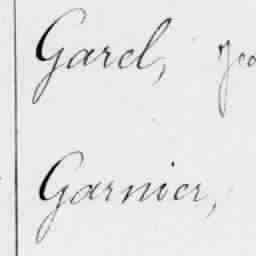 Garel,
Garnier,